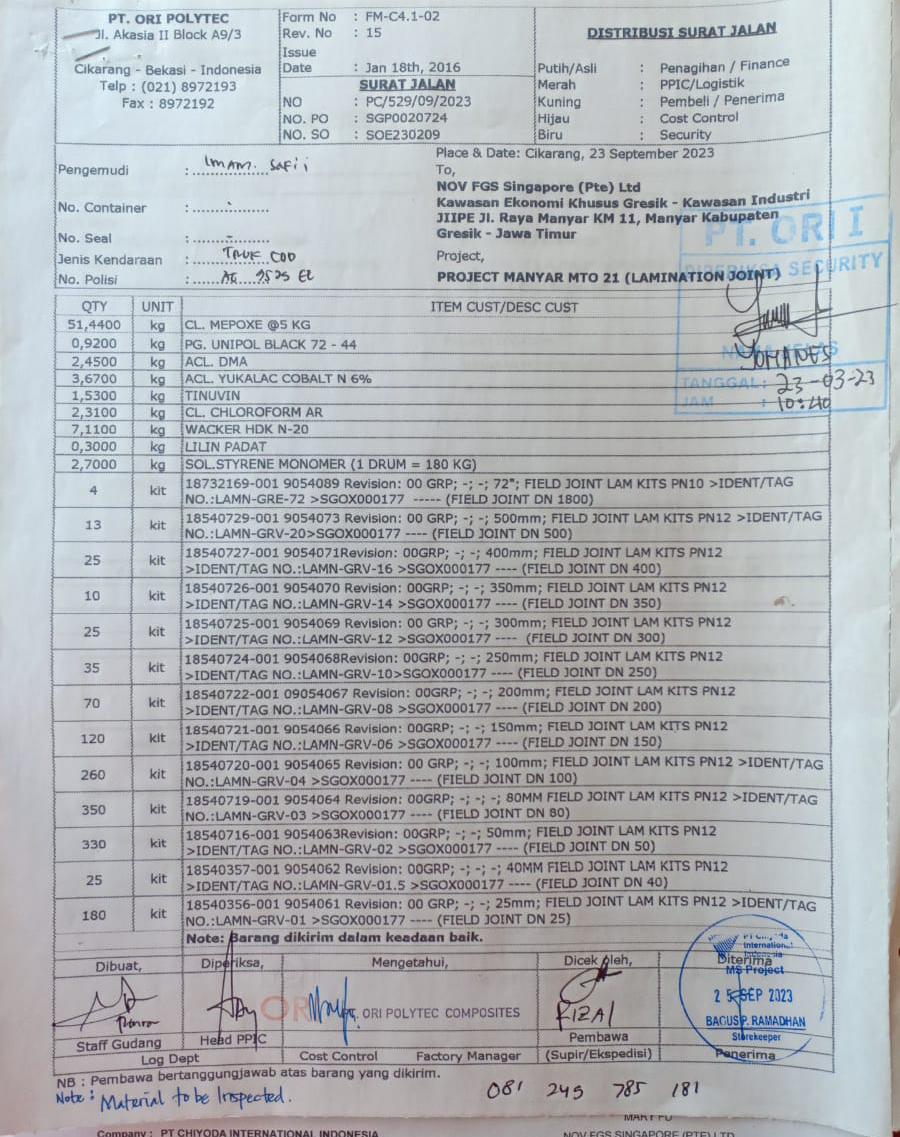 PT. ORI POLYTEC
Jl. Akasia II Block A9/3
Cikarang - Bekasi - Indonesia
Telp : (021) 8972193
Fax : 8972192
Form No : FM-C4.1-02
Rev. No : 15
Issue
Date : Jan 18th, 2016
SURAT JALAN
NO : PC/529/09/2023
NO. PO : SGP0020724
NO. SO : SOE230209
DISTRIBUSI SURAT JALAN
Putih/Asli : Penagihan / Finance
Merah : PPIC/Logistik
Kuning : Pembeli / Penerima
Hijau : Cost Control
Biru : Security
Pengemudi : Imam. Safii
No. Container : -
No. Seal : -
Jenis Kendaraan : Truk COD
No. Polisi : AG 9525 EL
Place & Date: Cikarang, 23 September 2023
To,
NOV FGS Singapore (Pte) Ltd
Kawasan Ekonomi Khusus Gresik - Kawasan Industri
JIIPE Jl. Raya Manyar KM 11, Manyar Kabupaten
Gresik - Jawa Timur
Project,
PROJECT MANYAR MTO 21 (LAMINATION JOINT)
PT. ORI I
DIPERIKSA SECURITY
YOHANES
TANGGAL : 23-03-23
JAM : 10:40
QTY UNIT ITEM CUST/DESC CUST
51,4400 kg CL. MEPOXE @5 KG
0,9200 kg PG. UNIPOL BLACK 72 - 44
2,4500 kg ACL. DMA
3,6700 kg ACL. YUKALAC COBALT N 6%
1,5300 kg TINUVIN
2,3100 kg CL. CHLOROFORM AR
7,1100 kg WACKER HDK N-20
0,3000 kg LILIN PADAT
2,7000 kg SOL.STYRENE MONOMER (1 DRUM = 180 KG)
4 kit 18732169-001 9054089 Revision: 00 GRP; -; -; 72"; FIELD JOINT LAM KITS PN10 >IDENT/TAG
NO.:LAMN-GRE-72 >SGOX000177 ----- (FIELD JOINT DN 1800)
13 kit 18540729-001 9054073 Revision: 00 GRP; -; -; 500mm; FIELD JOINT LAM KITS PN12 >IDENT/TAG
NO.:LAMN-GRV-20>SGOX000177 ---- (FIELD JOINT DN 500)
25 kit 18540727-001 9054071Revision: 00GRP; -; -; 400mm; FIELD JOINT LAM KITS PN12
>IDENT/TAG NO.:LAMN-GRV-16 >SGOX000177 ---- (FIELD JOINT DN 400)
10 kit 18540726-001 9054070 Revision: 00GRP; -; -; 350mm; FIELD JOINT LAM KITS PN12
>IDENT/TAG NO.:LAMN-GRV-14 >SGOX000177 ---- (FIELD JOINT DN 350)
25 kit 18540725-001 9054069 Revision: 00GRP; -; -; 300mm; FIELD JOINT LAM KITS PN12
>IDENT/TAG NO.:LAMN-GRV-12 >SGOX000177 ---- (FIELD JOINT DN 300)
35 kit 18540724-001 9054068Revision: 00GRP; -; -; 250mm; FIELD JOINT LAM KITS PN12
>IDENT/TAG NO.:LAMN-GRV-10>SGOX000177 ---- (FIELD JOINT DN 250)
70 kit 18540722-001 09054067 Revision: 00GRP; -; -; 200mm; FIELD JOINT LAM KITS PN12
>IDENT/TAG NO.:LAMN-GRV-08 >SGOX000177 ---- (FIELD JOINT DN 200)
120 kit 18540721-001 9054066 Revision: 00GRP; -; -; 150mm; FIELD JOINT LAM KITS PN12
>IDENT/TAG NO.:LAMN-GRV-06 >SGOX000177 ---- (FIELD JOINT DN 150)
260 kit 18540720-001 9054065 Revision: 00 GRP; -; -; 100mm; FIELD JOINT LAM KITS PN12 >IDENT/TAG
NO.:LAMN-GRV-04 >SGOX000177 ---- (FIELD JOINT DN 100)
350 kit 18540719-001 9054064 Revision: 00GRP; -; -; -; 80MM FIELD JOINT LAM KITS PN12 >IDENT/TAG
NO.:LAMN-GRV-03 >SGOX000177 ---- (FIELD JOINT DN 80)
330 kit 18540716-001 9054063Revision: 00GRP; -; -; 50mm; FIELD JOINT LAM KITS PN12
>IDENT/TAG NO.:LAMN-GRV-02 >SGOX000177 ---- (FIELD JOINT DN 50)
25 kit 18540357-001 9054062 Revision: 00GRP; -; -; -; 40MM FIELD JOINT LAM KITS PN12
>IDENT/TAG NO.:LAMN-GRV-01.5 >SGOX000177 ---- (FIELD JOINT DN 40)
180 kit 18540356-001 9054061 Revision: 00 GRP; -; -; 25mm; FIELD JOINT LAM KITS PN12 >IDENT/TAG
NO.:LAMN-GRV-01 >SGOX000177 ---- (FIELD JOINT DN 25)
Note: Barang dikirim dalam keadaan baik.
Dibuat, Diperiksa, Mengetahui, Dicek oleh, Diterima
PT Chiyoda
International
Indonesia
MS Project
25 SEP 2023
BAGUS P. RAMADHAN
Storekeeper
ORI ORI POLYTEC COMPOSITES
RIZAL
Staff Gudang Head PPIC Pembawa
Log Dept Cost Control Factory Manager (Supir/Ekspedisi) Penerima
NB : Pembawa bertanggungjawab atas barang yang dikirim.
Note : Material to be Inspected.
081 245 785 181
Company : PT CHIYODA INTERNATIONAL INDONESIA
NOV FGS SINGAPORE (PTE) LTD